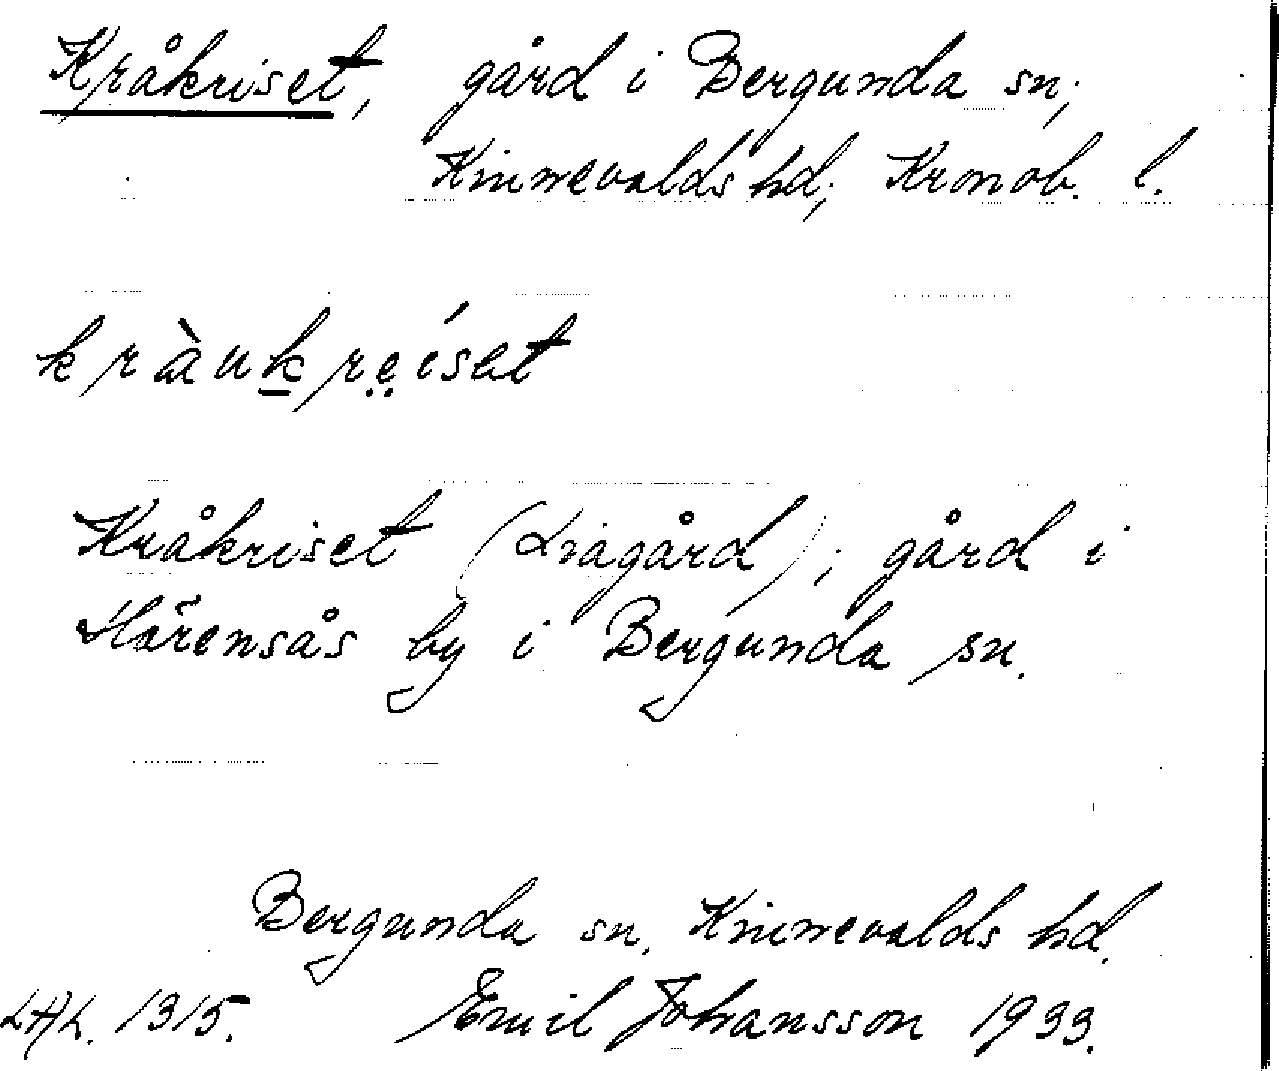 Kråkriset, gård i Bergunda sn,
Kinnevalds hd, Kronob. l.
kràukrẹíset
Kråkriset (Liagård), gård i
Härensås by i Bergunda sn.
Bergunda sn, Kinnevalds hd.
LAL. 1315. Emil Johansson 1933.